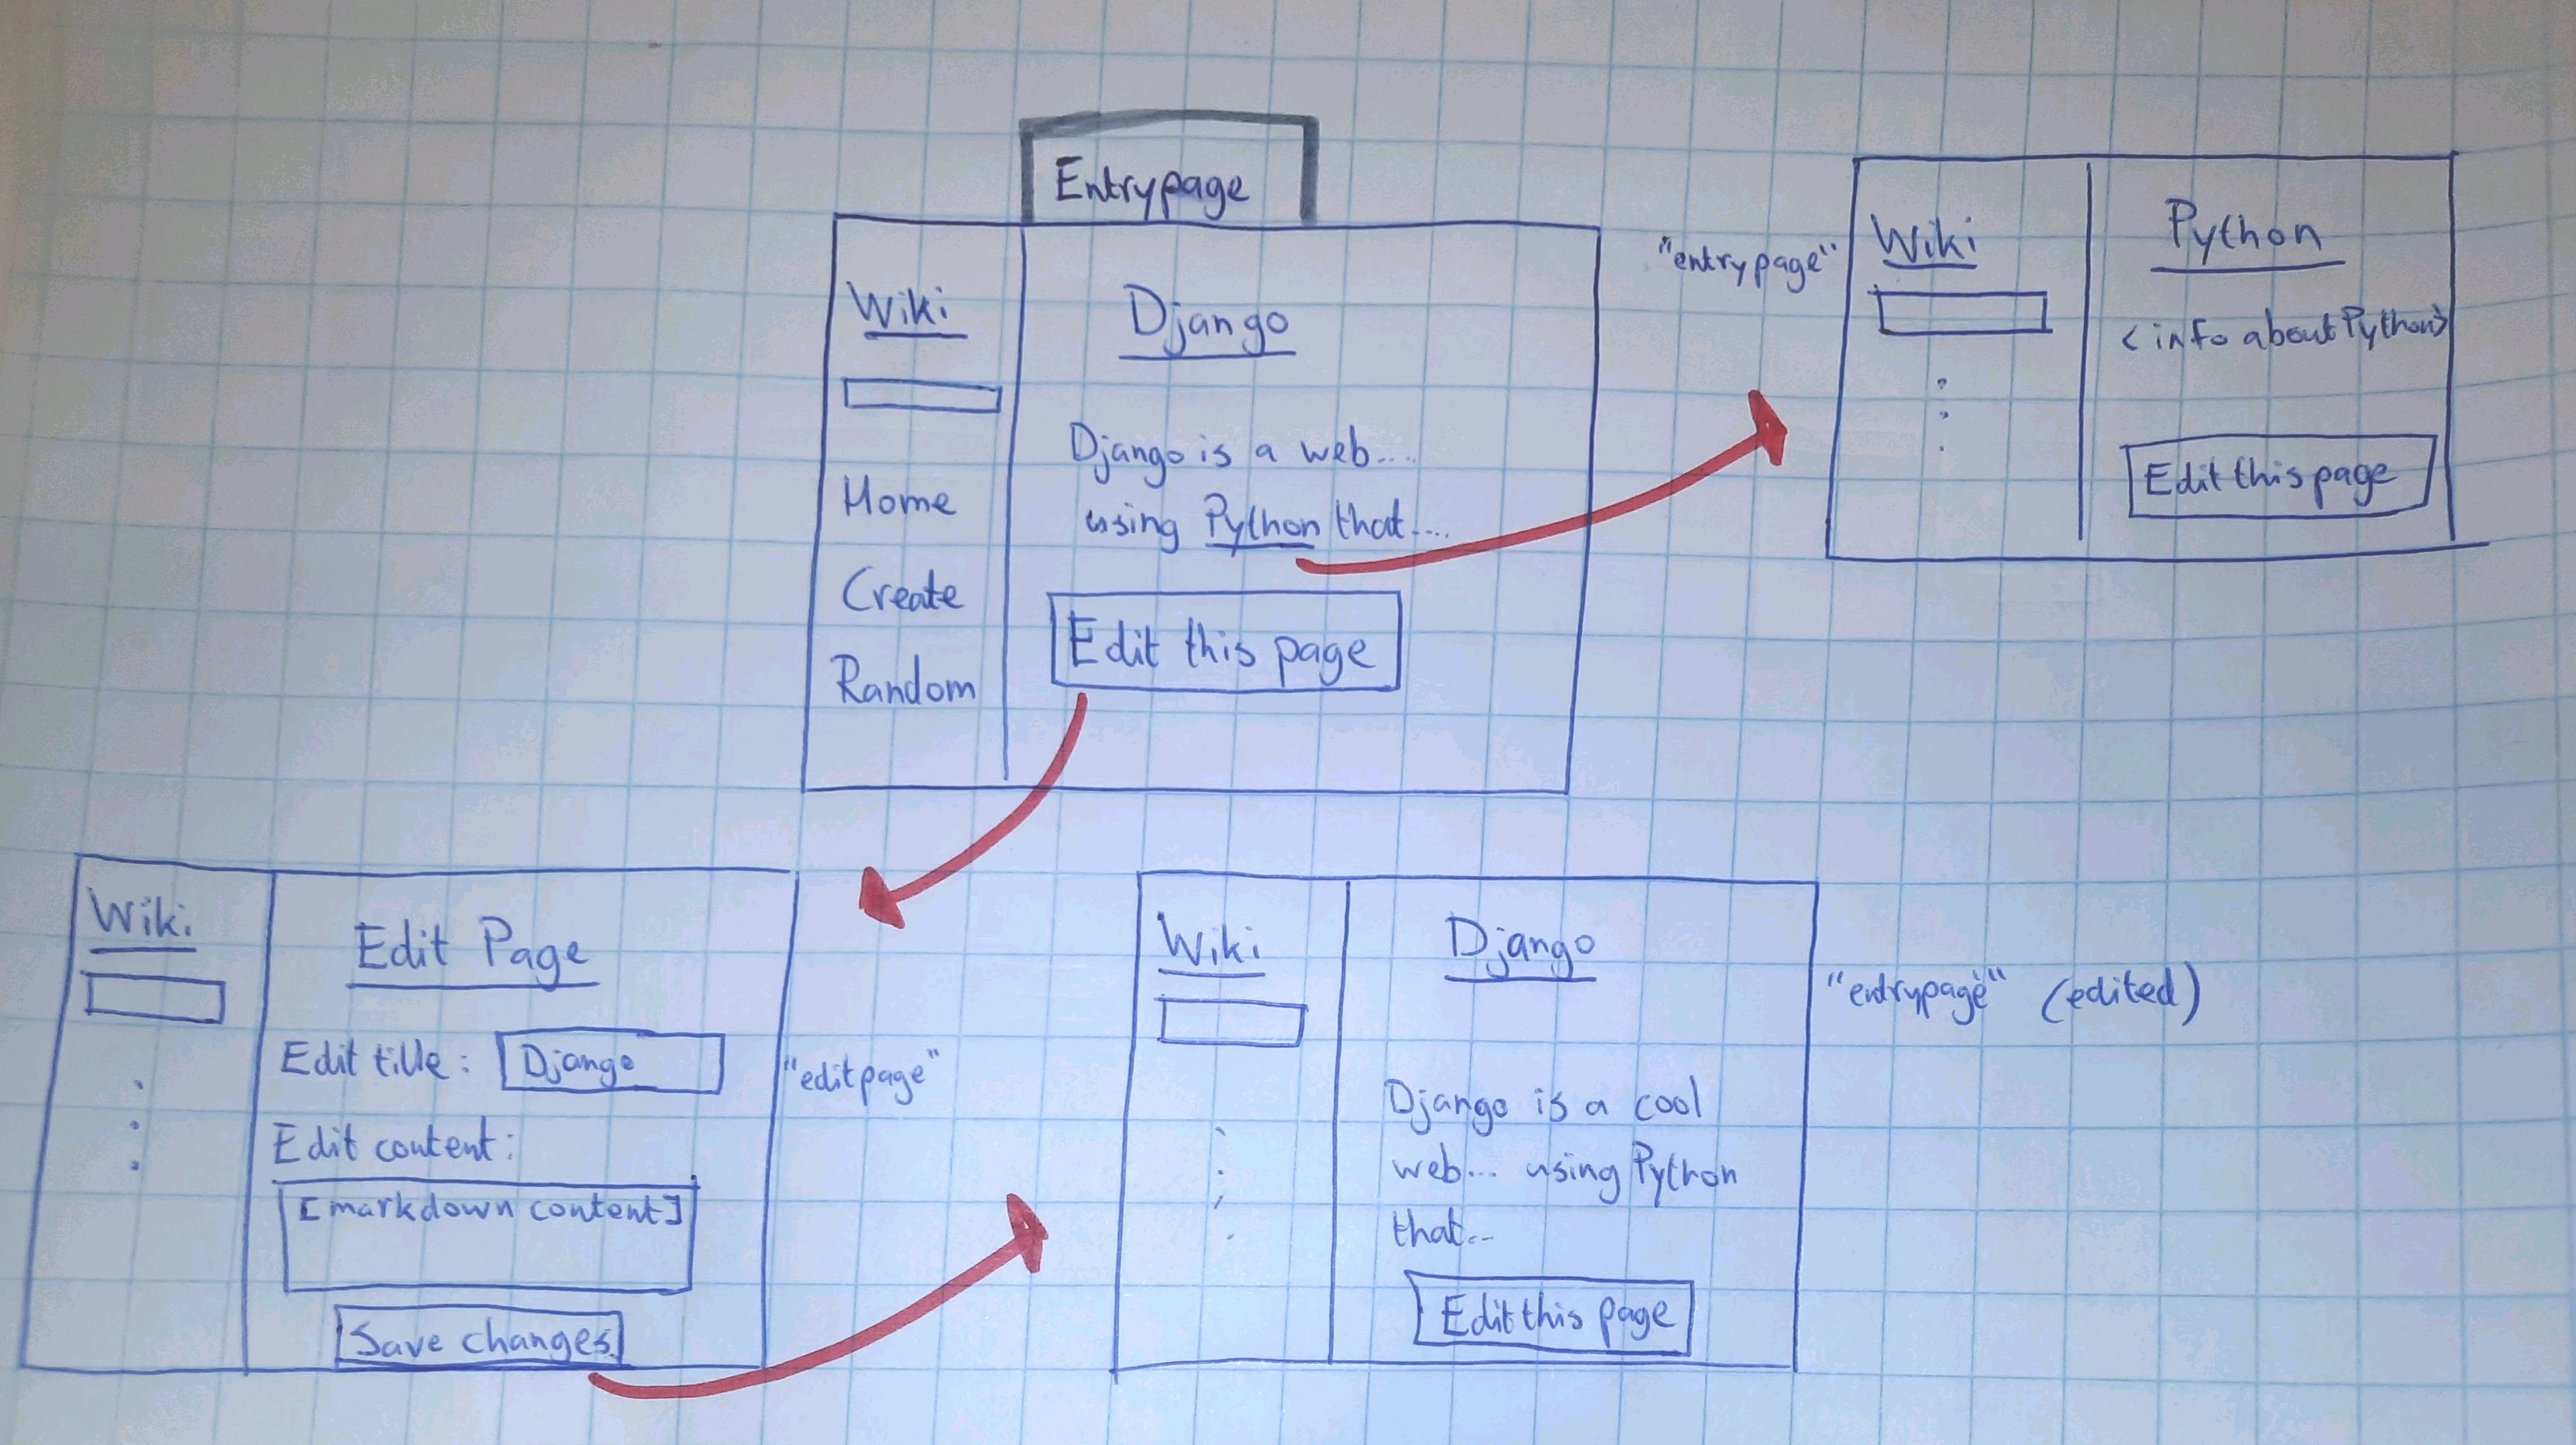 Entrypage
Wiki
Home
Create
Random
Django
Django is a web....
using Python that....
Edit this page
"entrypage"
Wiki
Python
<info about Python>
Edit this page
Wiki
Edit Page
Edit title: Django
Edit content:
[markdown content]
Save changes
"editpage"
Wiki
Django
Django is a cool
web... using Python
that...
Edit this page
"entrypage" (edited)